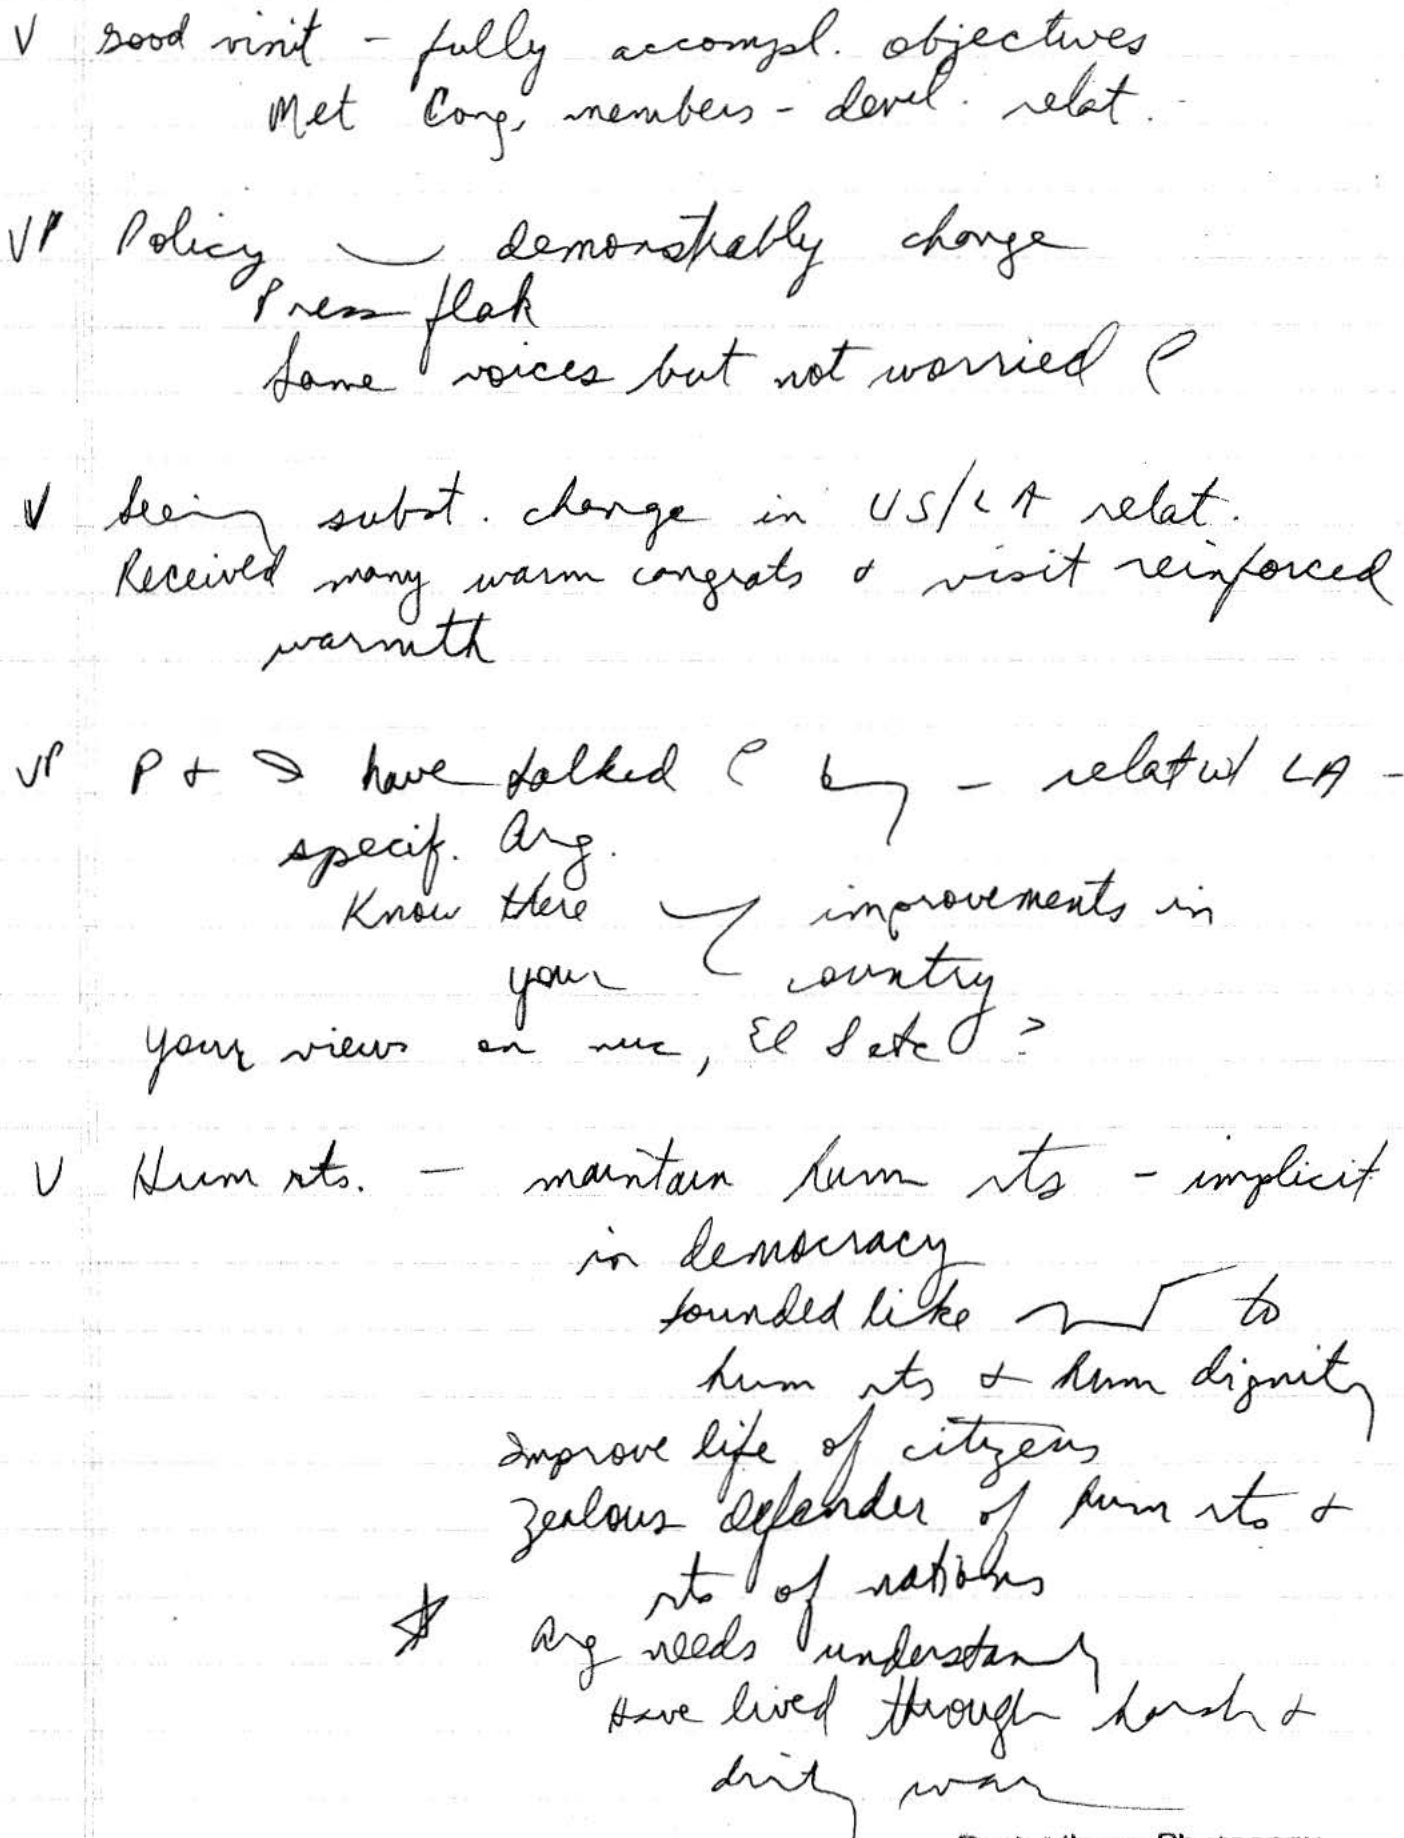 V good visit - fully accompl. objectives
Met Cong. members - devel. relat.
VP Policy demonstrably change
Press flak
Some voices but not worried
V Seeing subst. change in US/LA relat.
Received many warm congrats & visit reinforced
warmth
VP P & I have talked - relat w/ LA -
specif. Arg.
Know there improvements in
your country
Your views on nuc, El S etc ?
V Hum rts. - maintain hum rts - implicit
in democracy
sounded like to
hum rts & hum dignity
Improve life of citizens
Zealous defender of hum rts &
rts of nations
Arg needs understand
Have lived through harsh &
dirty war